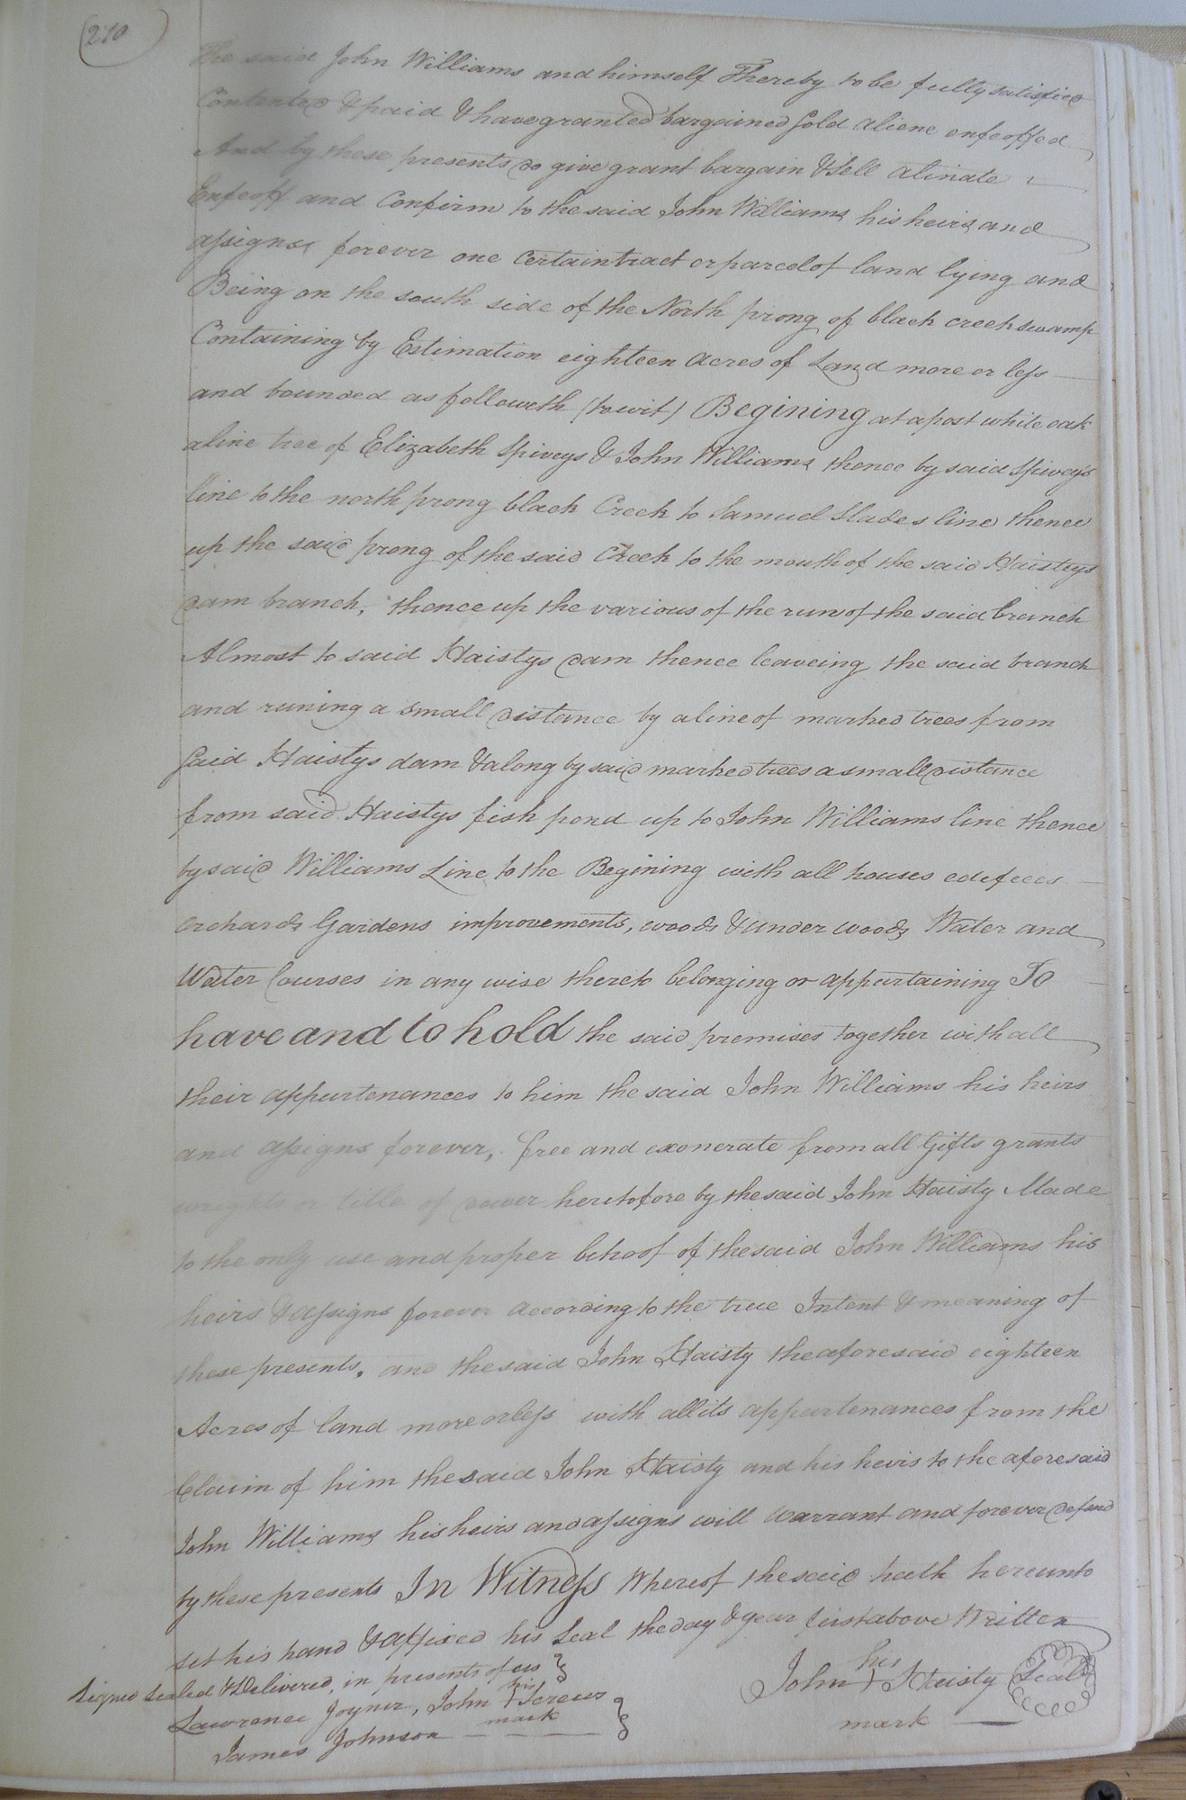 210
The said John Williams and himself Thereby to be fully satisfied
Contented & paid & have granted bargained Sold aliene enfeoffed
And by these presents do give grant bargain & Sell alinate
Enfeoff and Confirm to the said John Williams his heirs and
assigns forever one certain tract or parcel of land lying and
Being on the south side of the North prong of black creek swamp
Containing by Estimation eighteen acres of Land more or less
and bounded as followeth (towit) Begining at a post white oak
a line tree of Elizabeth Spiveys & John Williams thence by said Spiveys
line to the north prong black Creek to Samuel Slades line thence
up the said prong of the said Creek to the mouth of the said Haistys
dam branch, thence up the various of the run of the said branch
Almost to said Haistys dam thence leaveing the said branch
and runing a small distance by a line of marked trees from
Said Haistys dam & along by said marked trees a small distance
from said Haistys fish pond up to John Williams line thence
by said Williams Line to the Begining with all houses edefices
orchards Gardens improvements, woods & under woods Water and
Water Courses in any wise thereto belonging or appurtaining To
have and to hold the said premises together with all
their appurtenances to him the said John Williams his heirs
and assigns forever, free and exonerate from all Gifts grants
or title of dower heretofore by the said John Haisty Made
to the only use and proper behoof of the said John Williams his
heirs & assigns forever according to the true Intent & meaning of
these presents, and the said John Haisty the aforesaid eighteen
Acres of land more or less with all its appurtenances from the
Claim of him the said John Haisty and his heirs to the aforesaid
John Williams his heirs and assigns will warrant and forever defend
by these presents In Witness Whereof the said hath hereunto
set his hand & affixed his Seal the day & year first above Written
Signed Sealed & Delivered in presents of us
John his Haisty Seal
mark
Lawrence Joyner, John his Screws
mark
James Johnson